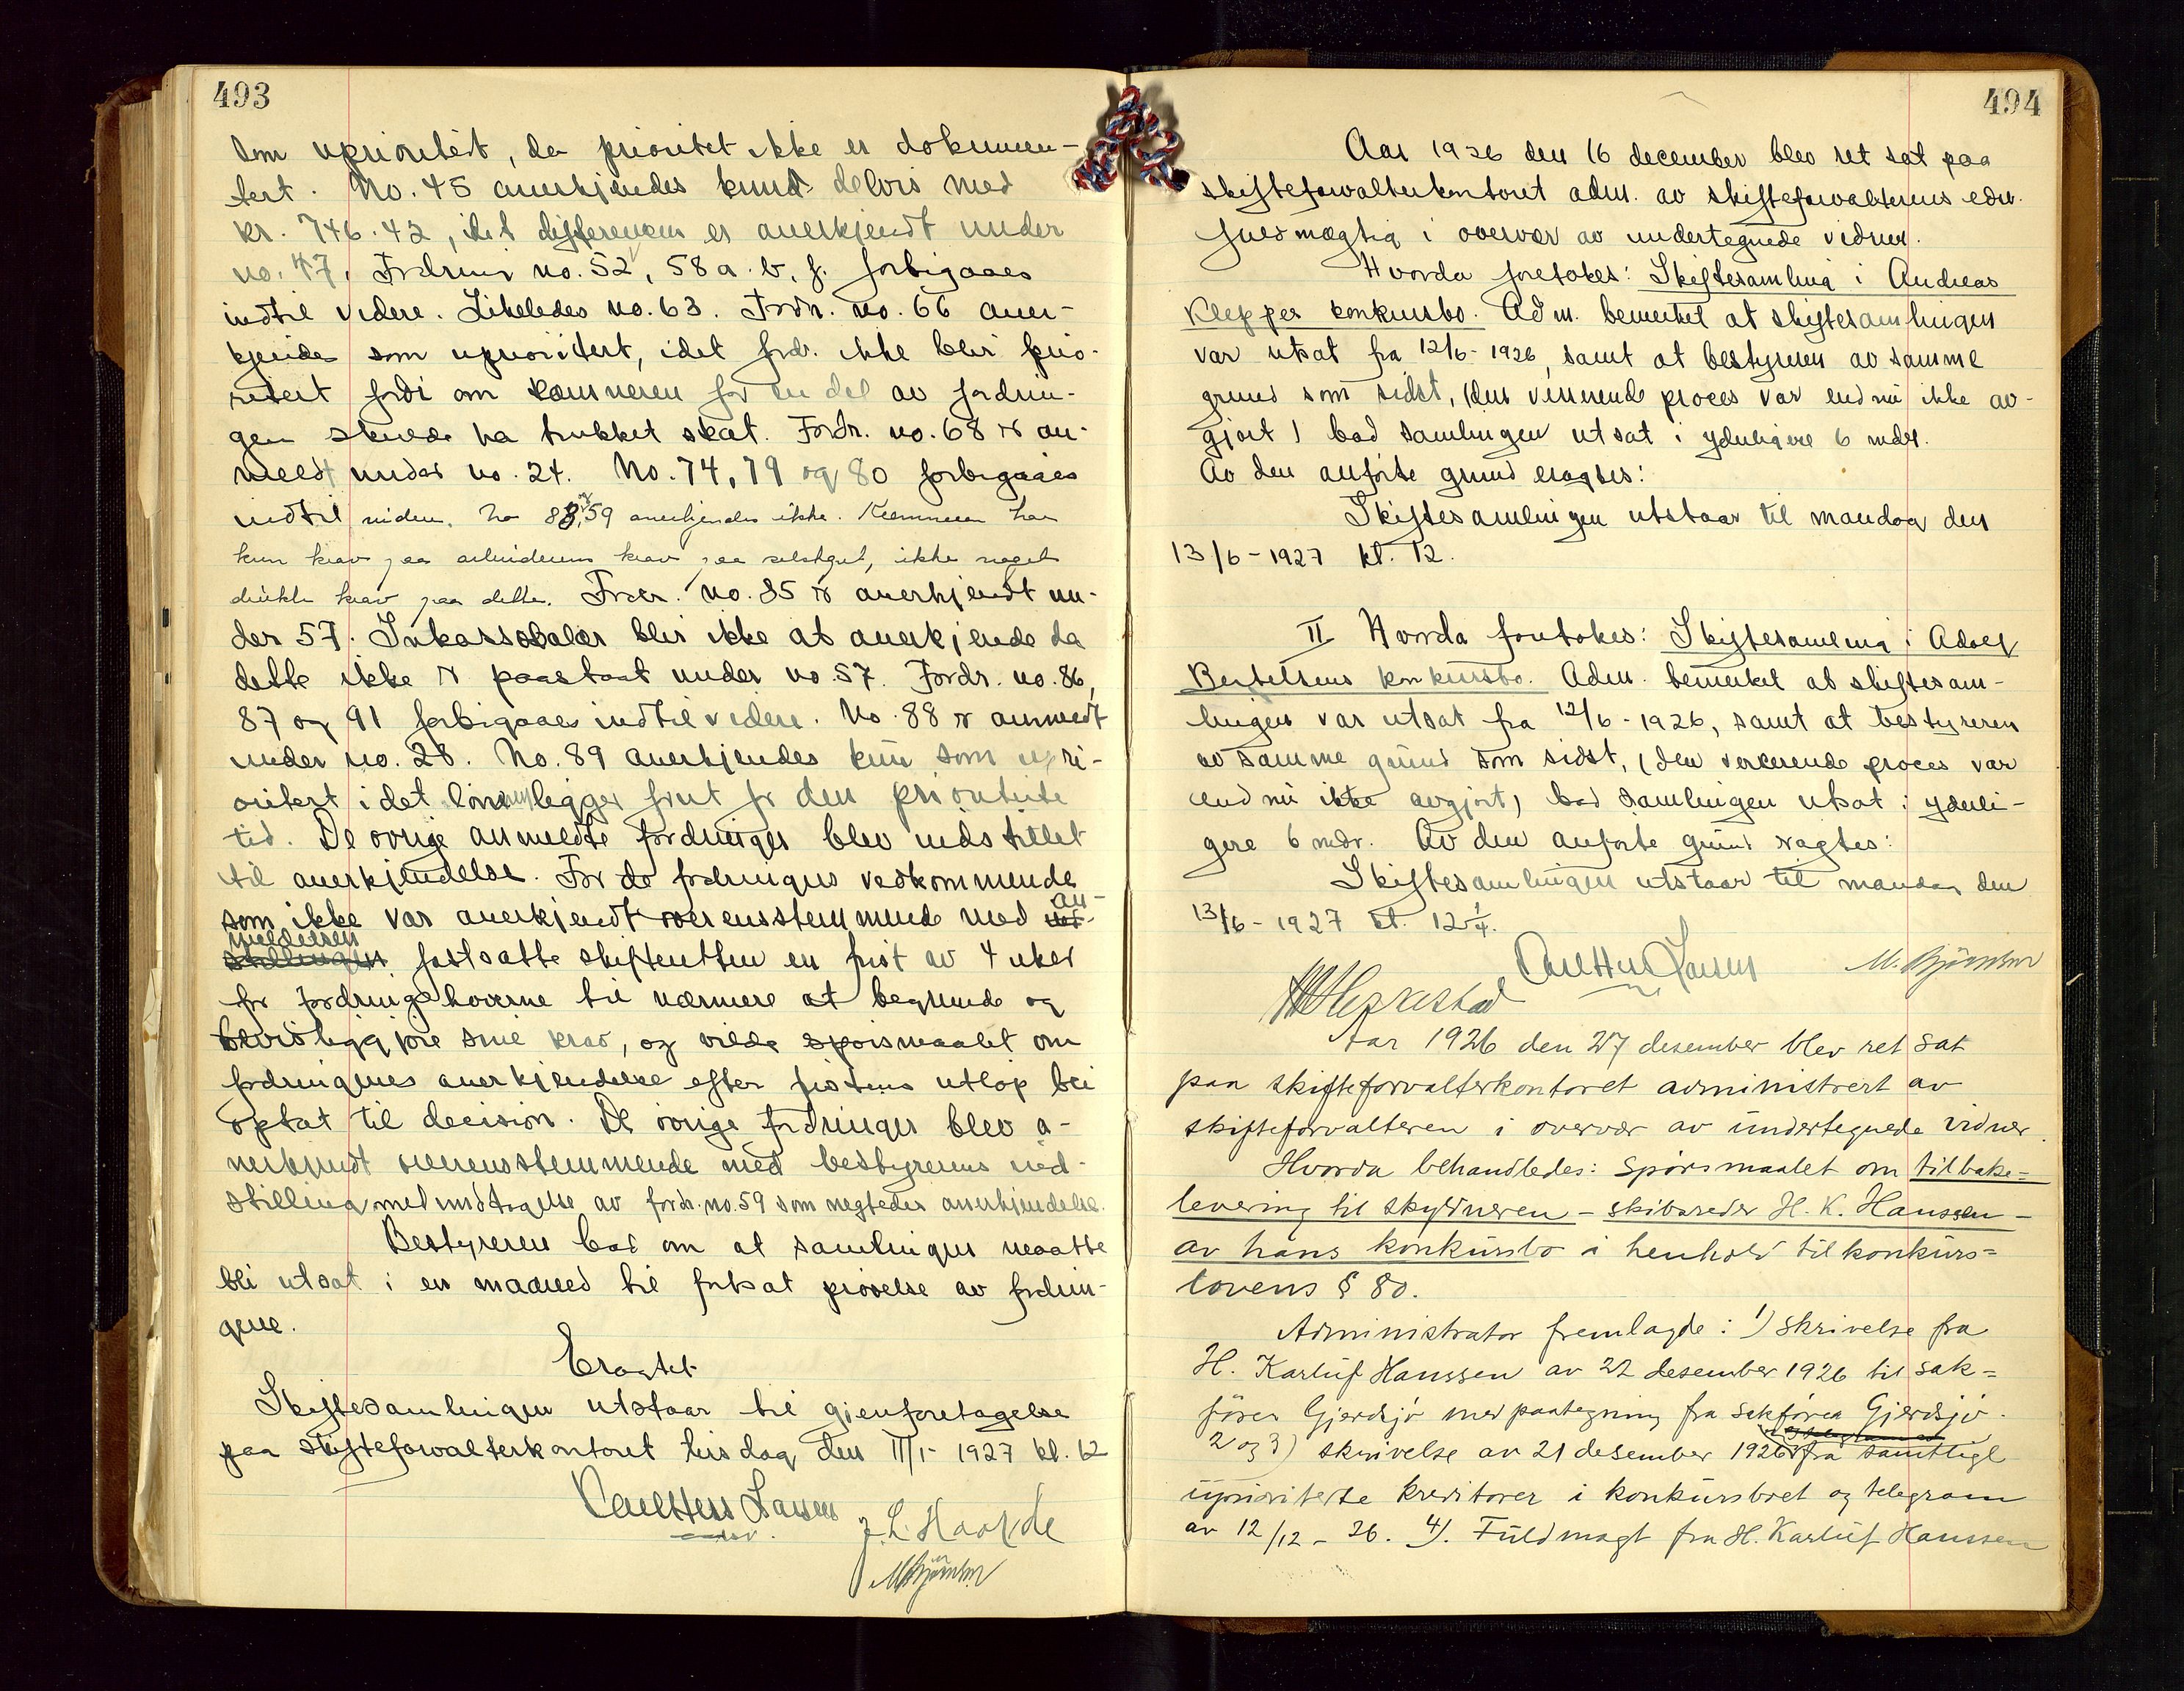 493
som uprioritert, da prioritet ikke er dokumen-
tert. No. 45 anerkjendes kund delvis med
kr. 746.42, idet differencen er anerkjendt under
no. 47. Fordring no. 52, 58 a. b. f. forbigaaes
indtil videre. Likeledes no. 63. Fordr. no. 66 aner-
kjendes som uprioritert, idet fordr. ikke blir prio-
ritert fordi om kæmneren for en del av fordrin-
gen skulde ha trukket skat. Fordr. no. 68 er an-
meldt under no. 24. No. 74, 79 og 80 forbigaaes
indtil videre. No 83, 59 anerkjendes ikke. Kæmneren har
kun krav paa arbeiderens krav paa selskapet, ikke noget
direkte krav paa dette. Fordr. no. 85 er anerkjendt un-
der 57. Inkassosalær blir ikke at anerkjende da
dette ikke er paastaat under no. 57. Fordr. no. 86,
87 og 91 forbigaaes indtil videre. No. 88 er anmeldt
under no. 28. No. 89 anerkjendes kun som upri-
oritert idet lønnen ligger forut for den prioriterte
tid. De øvrige anmeldte fordringer blev indstillet
til anerkjendelse. For de fordringers vedkommende
som ikke var anerkjendt overensstemmende med an-
meldelsen fastsatte skifteretten en frist av 4 uker
for fordringshaverne til nærmere at begrunde og
bevisliggjøre sine krav, og vilde spørsmaalet om
fordringenes anerkjendelse efter fristens utløp bli
optat til decision. De øvrige fordringer blev a-
nerkjendt overensstemmende med bestyrerens ind-
stilling med undtagelse av fordr. no. 59 som negtedes anerkjendelse.
Bestyreren bad om at samlingen maatte
bli utsat i en maaned til fortsat prøvelse av fordrin-
gene.
Eragtet
Skiftesamlingen utstaar til gjenforetagelse
paa skifteforvalterkontoret tirsdag den 11/1- 1927 kl. 12
Carl Hess Larsen
edsv.
J. L. Haarde
M. Bjørnsen
494
Aar 1926 den 16 december blev ret sat paa
skifteforvalterkontoret adm. av skifteforvalterens edsv.
fuldmægtig i overvær av undertegnede vidner.
Hvorda foretokes: Skiftesamling i Andreas
Kleppes konkursbo. Adm. bemerket at skiftesamlingen
var utsat fra 12/6- 1926, samt at bestyreren av samme
grund som sidst, (den verserende proces var endnu ikke av-
gjort) bad samlingen utsat i yderligere 6 mdr.
Av den anførte grund eragtes:
Skiftesamlingen utstaar til mandag den
13/6- 1927 kl. 12.
II Hvorda foretokes: Skiftesamling i Adolf
Bertelsens konkursbo. Adm. bemerket at skiftesam-
lingen var utsat fra 12/6- 1926, samt at bestyreren
av samme grund som sidst, (den verserende proces var
endnu ikke avgjort) bad samlingen utsat i yderli-
gere 6 mdr. Av den anførte grund eragtes:
Skiftesamlingen utstaar til mandag den
13/6- 1927 kl. 12 1/4.
Carl Hess Larsen M. Bjørnsen
Aar 1926 den 27 desember blev ret sat
paa skifteforvalterkontoret administrert av
skifteforvalteren i overvær av undertegnede vidner.
Hvorda behandledes: Spørsmaalet om tilbake=
levering til skyldneren - skibsreder H. K. Hanssen -
av hans konkursbo i henhold til konkurs=
lovens § 80.
Administrator fremlagde: 1) skrivelse fra
H. Karluf Hanssen av 22 desember 1926 til sak=
fører Gjerdsjø med paategning fra sakfører Gjerdsjø.
2 og 3) skrivelse av 21 desember 1926 fra samtlige
uprioriterte kreditorer i konkursboet og telegram
av 12/12 - 26. 4). Fuldmagt fra H. Karluf Hanssen